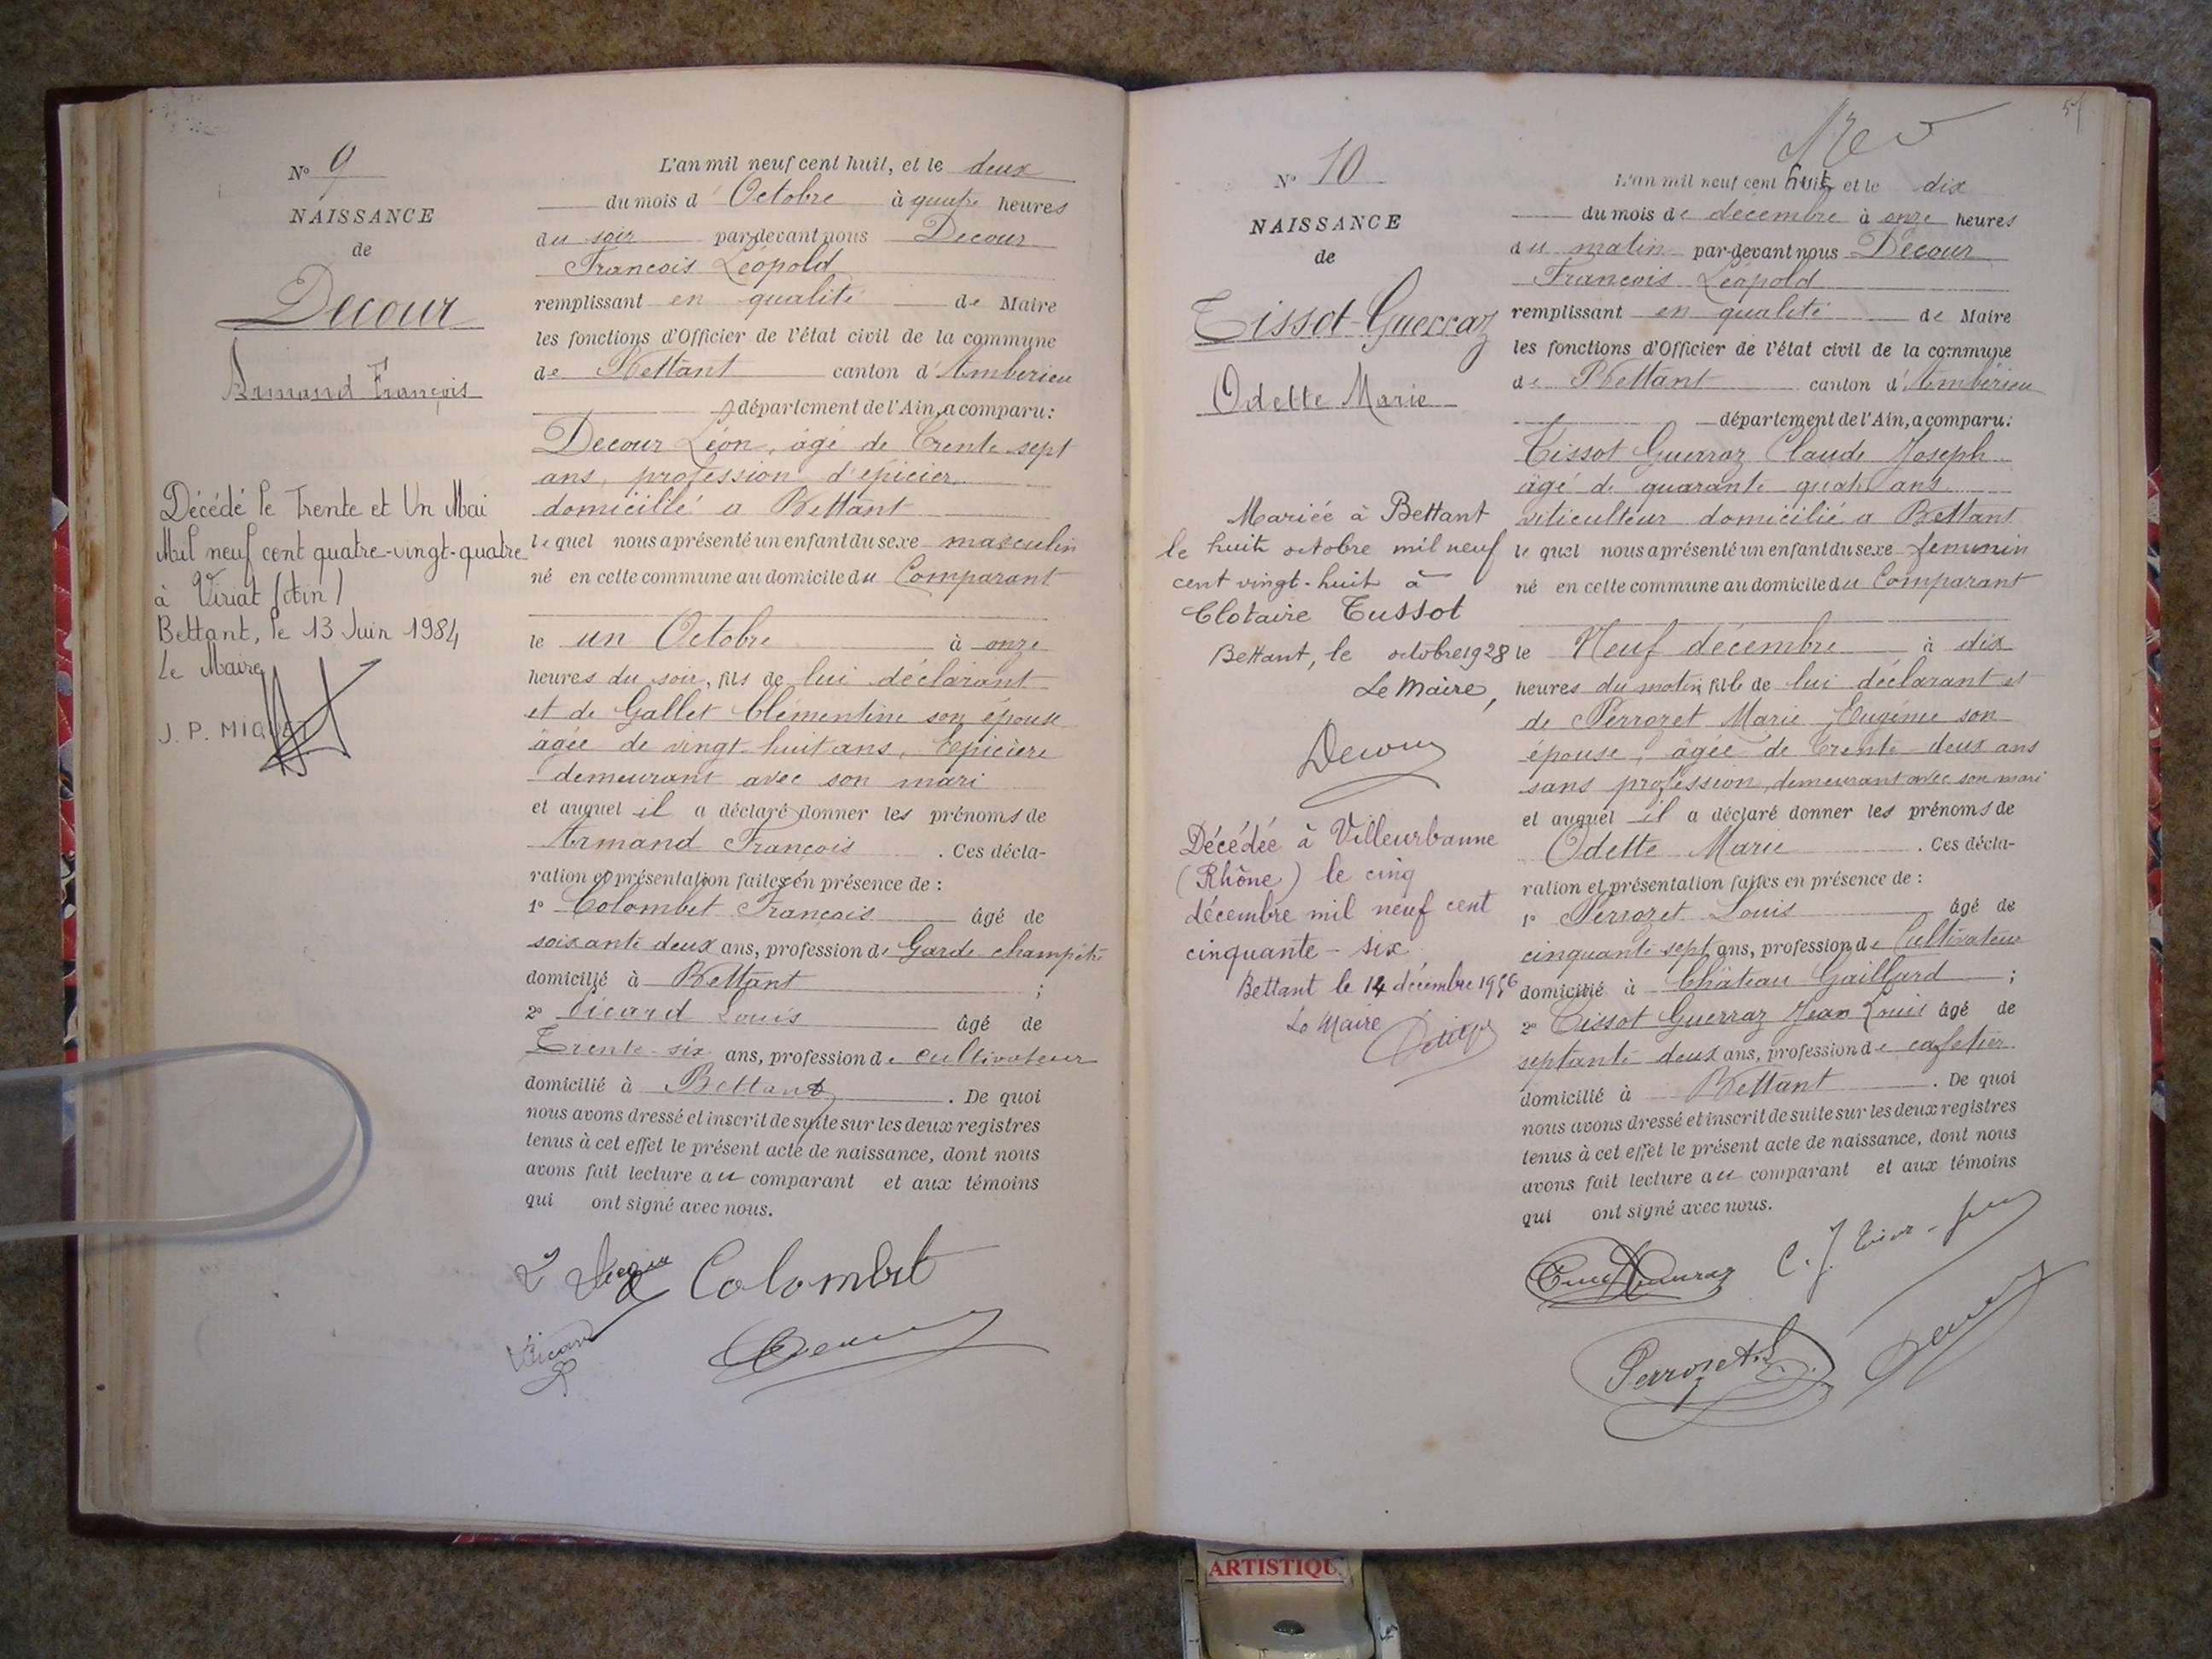 N° 9
NAISSANCE
de
Decour
Armand François
Décédé le Trente et Un Mai
Mil neuf cent quatre-vingt-quatre
à Viriat (Ain)
Bettant, le 13 Juin 1984
Le Maire
J. P. MIQUET
L'an mil neuf cent huit, et le deux
du mois d'Octobre à quatre heures
du soir par-devant nous Decour
François Léopold
remplissant en qualité de Maire
les fonctions d'Officier de l'état civil de la commune
de Bettant canton d'Ambérieu
département de l'Ain, a comparu:
Decour Léon, âgé de Trente sept
ans, profession d'épicier
domicilié a Bettant
lequel nous a présenté un enfant du sexe masculin
né en cette commune au domicile du Comparant
le un Octobre à onze
heures du soir, fils de lui déclarant
et de Gallet Clémentine son épouse
âgée de vingt huit ans, Epicière
demeurant avec son mari
et auquel il a déclaré donner les prénoms de
Armand François . Ces décla-
ration et présentation faites en présence de :
1° Colombet François âgé de
soixante deux ans, profession de Garde champêtre
domicilié à Bettant ;
2° Vicard Louis âgé de
Trente-six ans, profession de cultivateur
domicilié à Bettant . De quoi
nous avons dressé et inscrit de suite sur les deux registres
tenus à cet effet le présent acte de naissance, dont nous
avons fait lecture au comparant et aux témoins
qui ont signé avec nous.
Colombet
Vicard
N° 10
NAISSANCE
de
Tissot-Guerraz
Odette Marie
Mariée à Bettant
le huit octobre mil neuf
cent vingt-huit à
Clotaire Tussot
Bettant, le octobre 1928
Le Maire,
Decour
Décédée à Villeurbanne
(Rhône) le cinq
décembre mil neuf cent
cinquante-six
Bettant le 14 décembre 1956
Le Maire
L'an mil neuf cent huit et le dix
du mois de décembre à onze heures
du matin par-devant nous Decour
François Léopold
remplissant en qualité de Maire
les fonctions d'Officier de l'état civil de la commune
de Bettant canton d'Ambérieu
département de l'Ain, a comparu:
Tissot Guerraz Claude Joseph
âgé de quarante quatre ans
viticulteur domicilié a Bettant
lequel nous a présenté un enfant du sexe feminin
né en cette commune au domicile du Comparant
le Neuf décembre à dix
heures du matin fille de lui déclarant et
de Perrozet Marie Eugénie son
épouse, âgée de Trente-deux ans
sans profession, demeurant avec son mari
et auquel il a déclaré donner les prénoms de
Odette Marie . Ces décla-
ration et présentation faites en présence de :
1° Perrozet Louis âgé de
cinquante sept ans, profession de Cultivateur
domicilié à Château Gaillard ;
2° Tissot Guerraz Jean Louis âgé de
septante deux ans, profession de cafetier
domicilié à Bettant . De quoi
nous avons dressé et inscrit de suite sur les deux registres
tenus à cet effet le présent acte de naissance, dont nous
avons fait lecture au comparant et aux témoins
qui ont signé avec nous.
Perrozet L
ARTISTIQU